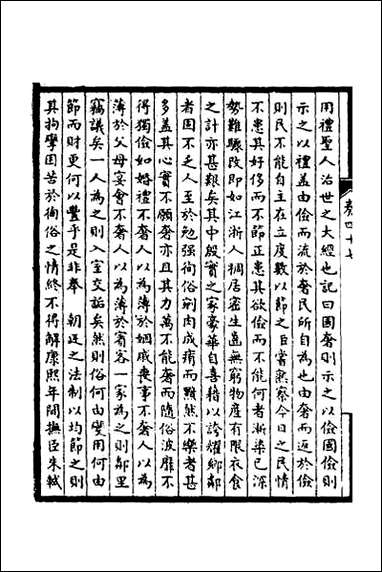 用禮聖人治世之大經也記曰國奢則示之以儉國儉則
示之以禮蓋由儉而流於奢民所自為也由奢而返於儉
則民不能自主在立度數以節之日嘗熟察今日之民情
不患其好侈而不節正患其欲儉而不能何者漸染已深
勢難驟改即如江浙人稠居密生齒無窮物產有限衣食
之計亦甚艱矣其中殷實之家豪華自喜藉以誇耀鄉鄰
者固不乏人至於勉强徇俗剜肉成瘡而黯然不樂者甚
多蓋其心實不願奢亦且其力萬不能奢而隨俗波靡不
得獨儉如婚禮不奢人以為薄於姻戚喪事不奢人以為
薄於父母宴會不奢人以為薄於賓客一家為之則鄰里
竊議矣一人為之則入室交詬矣然則俗何由變用何由
節而財更何以豐乎是非奉 朝廷之法制以均節之則
其拘攣困苦於徇俗之情終不得解康熙年間撫臣朱軾
卷四十七